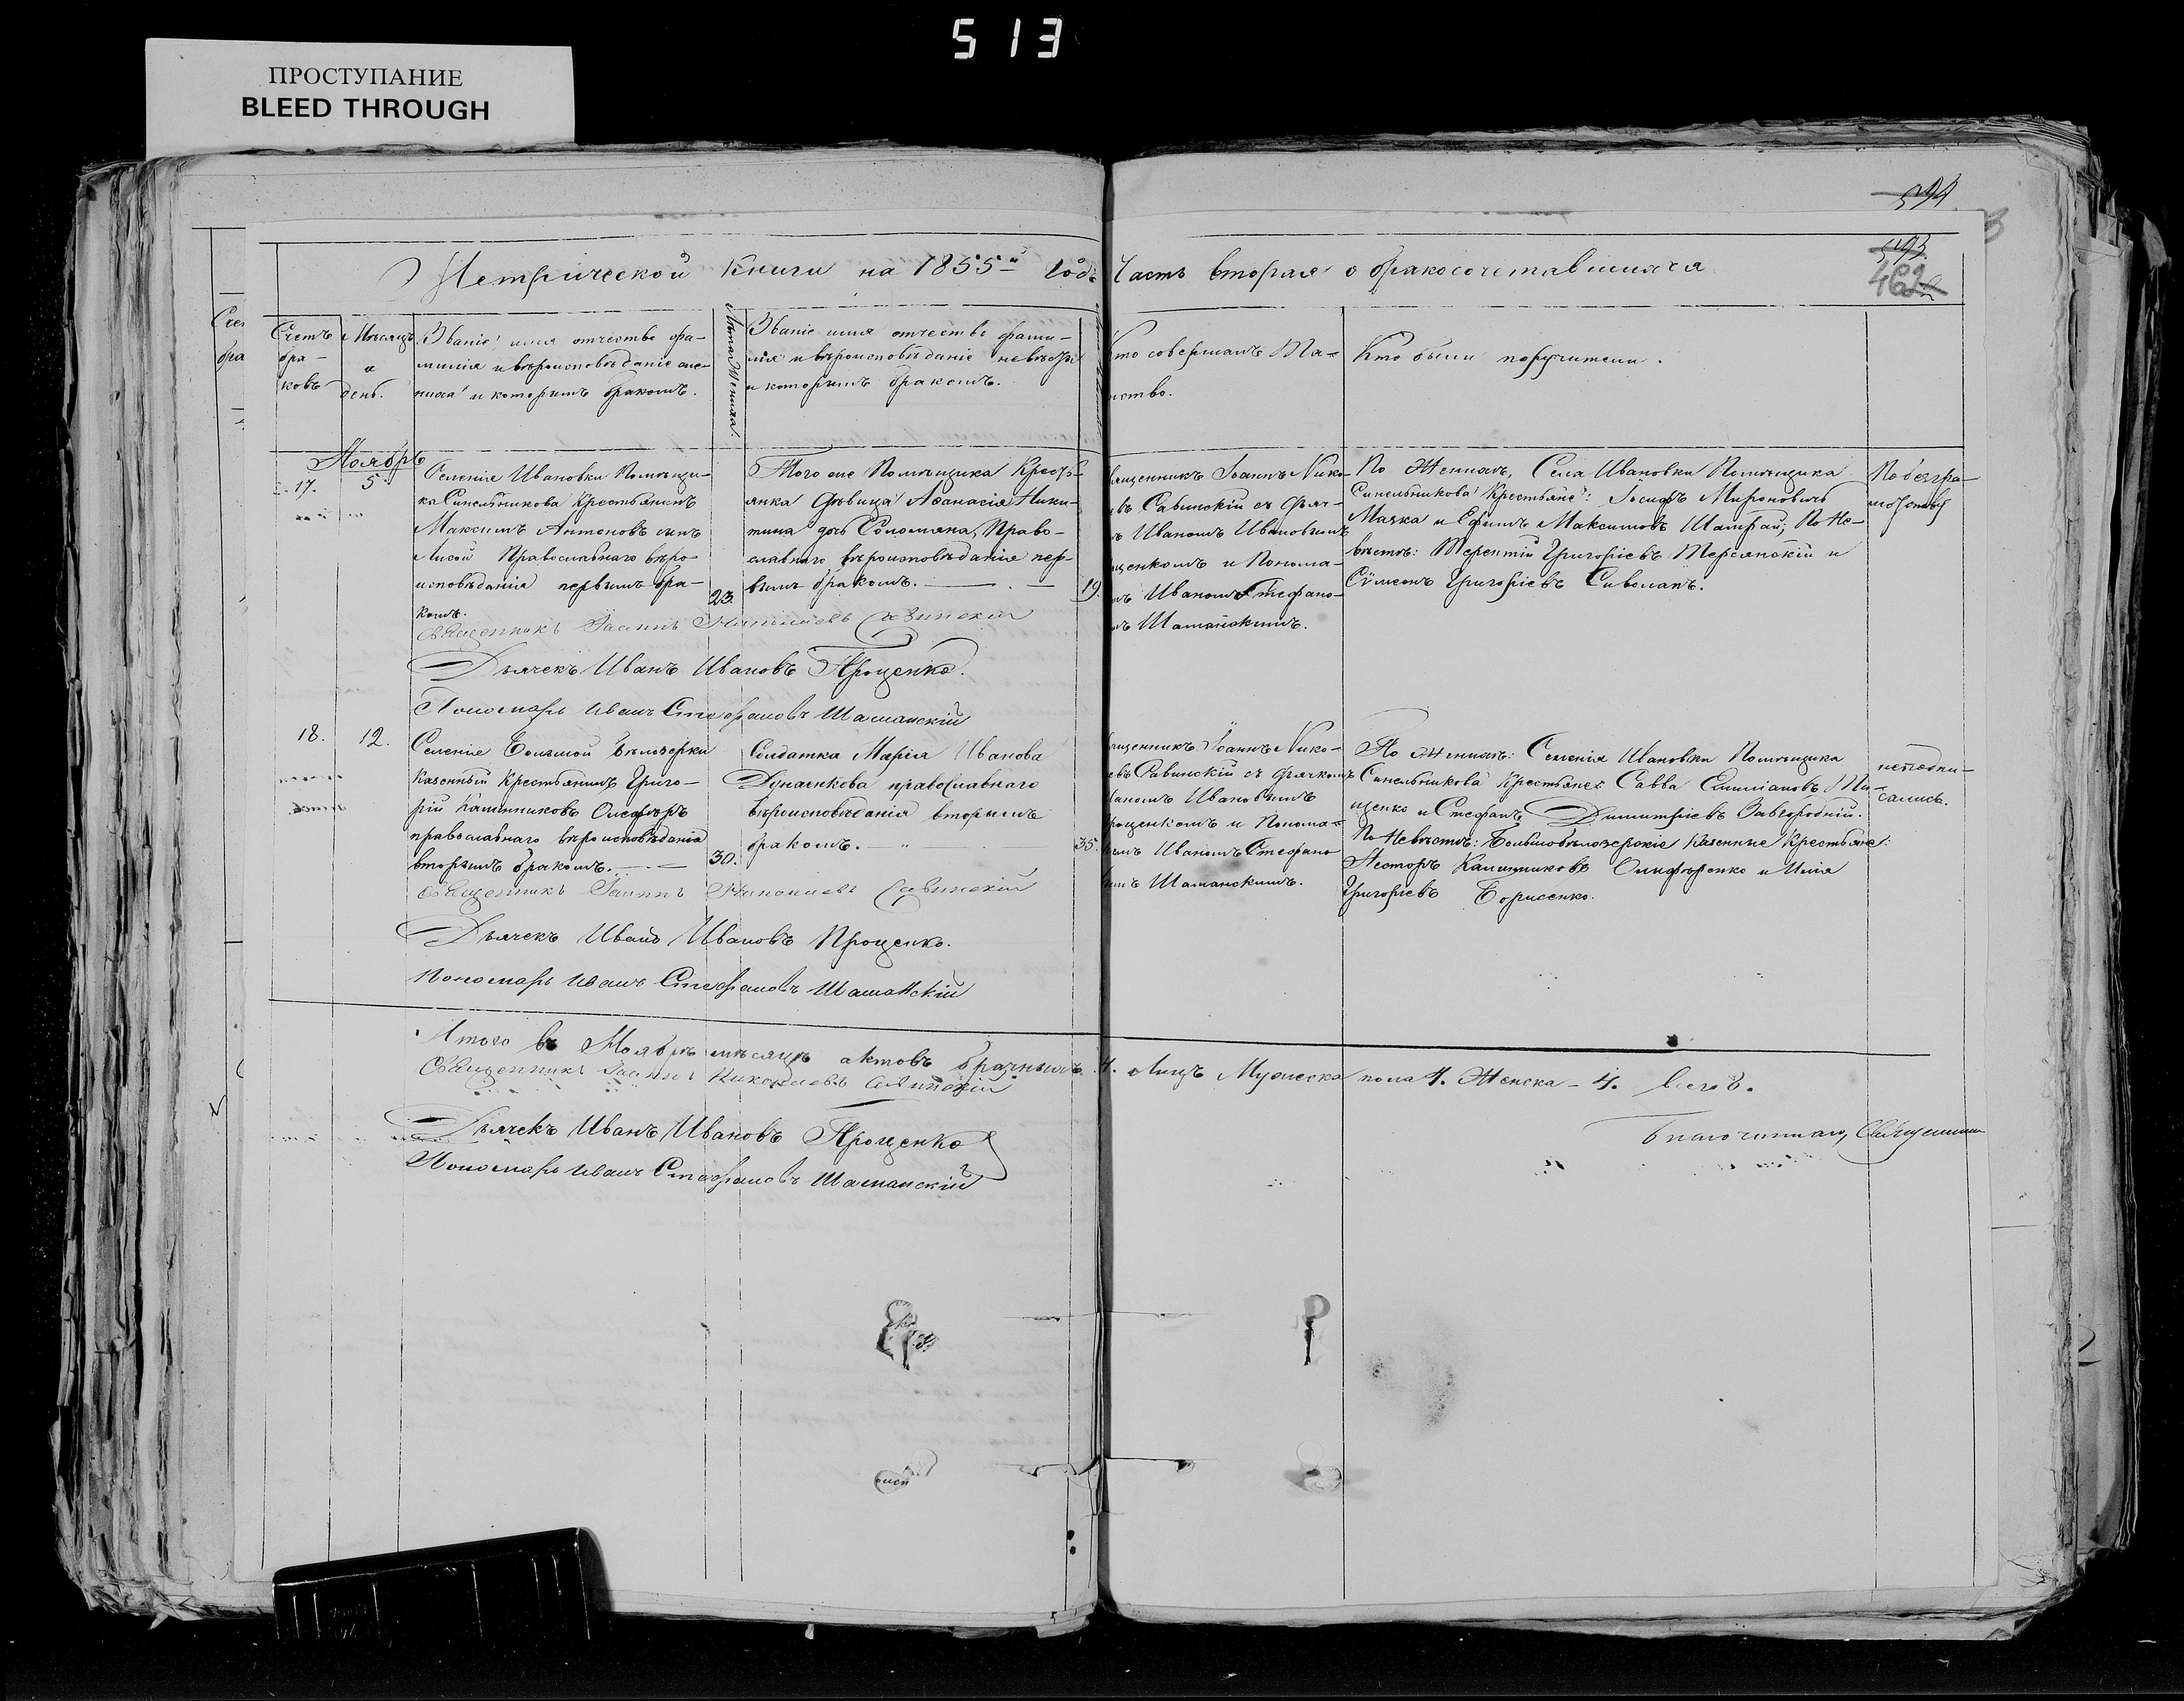 513
ПРОСТУПАНИЕ
BLEED THROUGH
594
593
462
Метрической Книги на 1855й годъ Часть вторая о бракосочетавшихся
Счетъ бра-
ковъ
Мѣсяцъ
и
день.
Званіе имя отчество фа-
милія и вѣроисповѣданіе же-
ниха и которымъ бракомъ.
Лѣта Жениха.
Званіе имя отчество фами-
лія и вѣроисповѣданіе невѣсты
и которымъ бракомъ.
Кто совершалъ Та-
инство.
Кто были поручители.
Ноябрь
17.
5.
Селенія Ивановки Помѣщи-
ка Синельникова Крестьянинъ
Максимъ Антоновъ сынъ
Лисой Православнаго вѣро-
исповѣданія первымъ бра-
комъ.
23.
Того же Помѣщика Кресть-
янка дѣвица Аѳанасія Ники-
тина дочь Соломяна, Право-
славнаго вѣроисповѣданія пер-
вымъ бракомъ.
19.
ященникъ Іоаннъ Нико-
въ Савинскій съ дьяч-
ъ Иваномъ Ивановымъ
щенкомъ и Понома-
мъ Иваномъ Стефано-
мъ Шаманскимъ.
По Женихѣ, Села Ивановки Помѣщика
Синельникова Крестьяне: Іосифъ Мироновичъ
Мачка и Ефимъ Максимовъ Шамрай; По Не-
вѣстѣ: Терентій Григоріевъ Терсянскій и
Сѵмеонъ Григоріевъ Сиволапъ.
По безгра-
мотству
Священникъ Іоаннъ Николаевъ Савинскій
Дьячекъ Иванъ Ивановъ Проценко.
Пономарь Иванъ Стефановъ Шаманскій
18.
12.
Селенія Большой Бѣлозерки
Казенный Крестьянинъ Григо-
рій Калинниковъ Олефиръ
православнаго вѣроисповѣданія
вторымъ бракомъ.
30.
Солдатка Марія Иванова
Дунаенкова православнаго
вѣроисповѣданія вторымъ
бракомъ.
35.
ященникъ Іоаннъ Нико-
евъ Савинскій съ дьячкомъ
ваномъ Ивановымъ
роценкомъ и Понома-
емъ Иваномъ Стефано
ымъ Шаманскимъ.
По Женихѣ: Селенія Ивановки Помѣщика
Синельникова Крестьяне: Савва Емиліановъ Ти-
щенко и Стефанъ Димитріевъ Завгородній.
По Невѣстѣ: Большобѣлозерскіе Казенные Крестьяне:
Несторъ Калинниковъ Олиференко и Илія
Григоріевъ Борисенко.
неподпи-
сались.
Священникъ Іоаннъ Николаевъ Савинскій
Дьячекъ Иванъ Ивановъ Проценко.
Пономарь Иванъ Стефановъ Шаманскій
Итого въ Ноябрѣ мѣсяцѣ актовъ брачныхъ 4. Лицъ Мужеска пола 4. Женска - 4. всего 8.
Священникъ Іоаннъ Николаевъ Савинскій
Дьячекъ Иванъ Ивановъ Проценко
Пономарь Иванъ Стефановъ Шаманскій
Благочинный, Священникъ